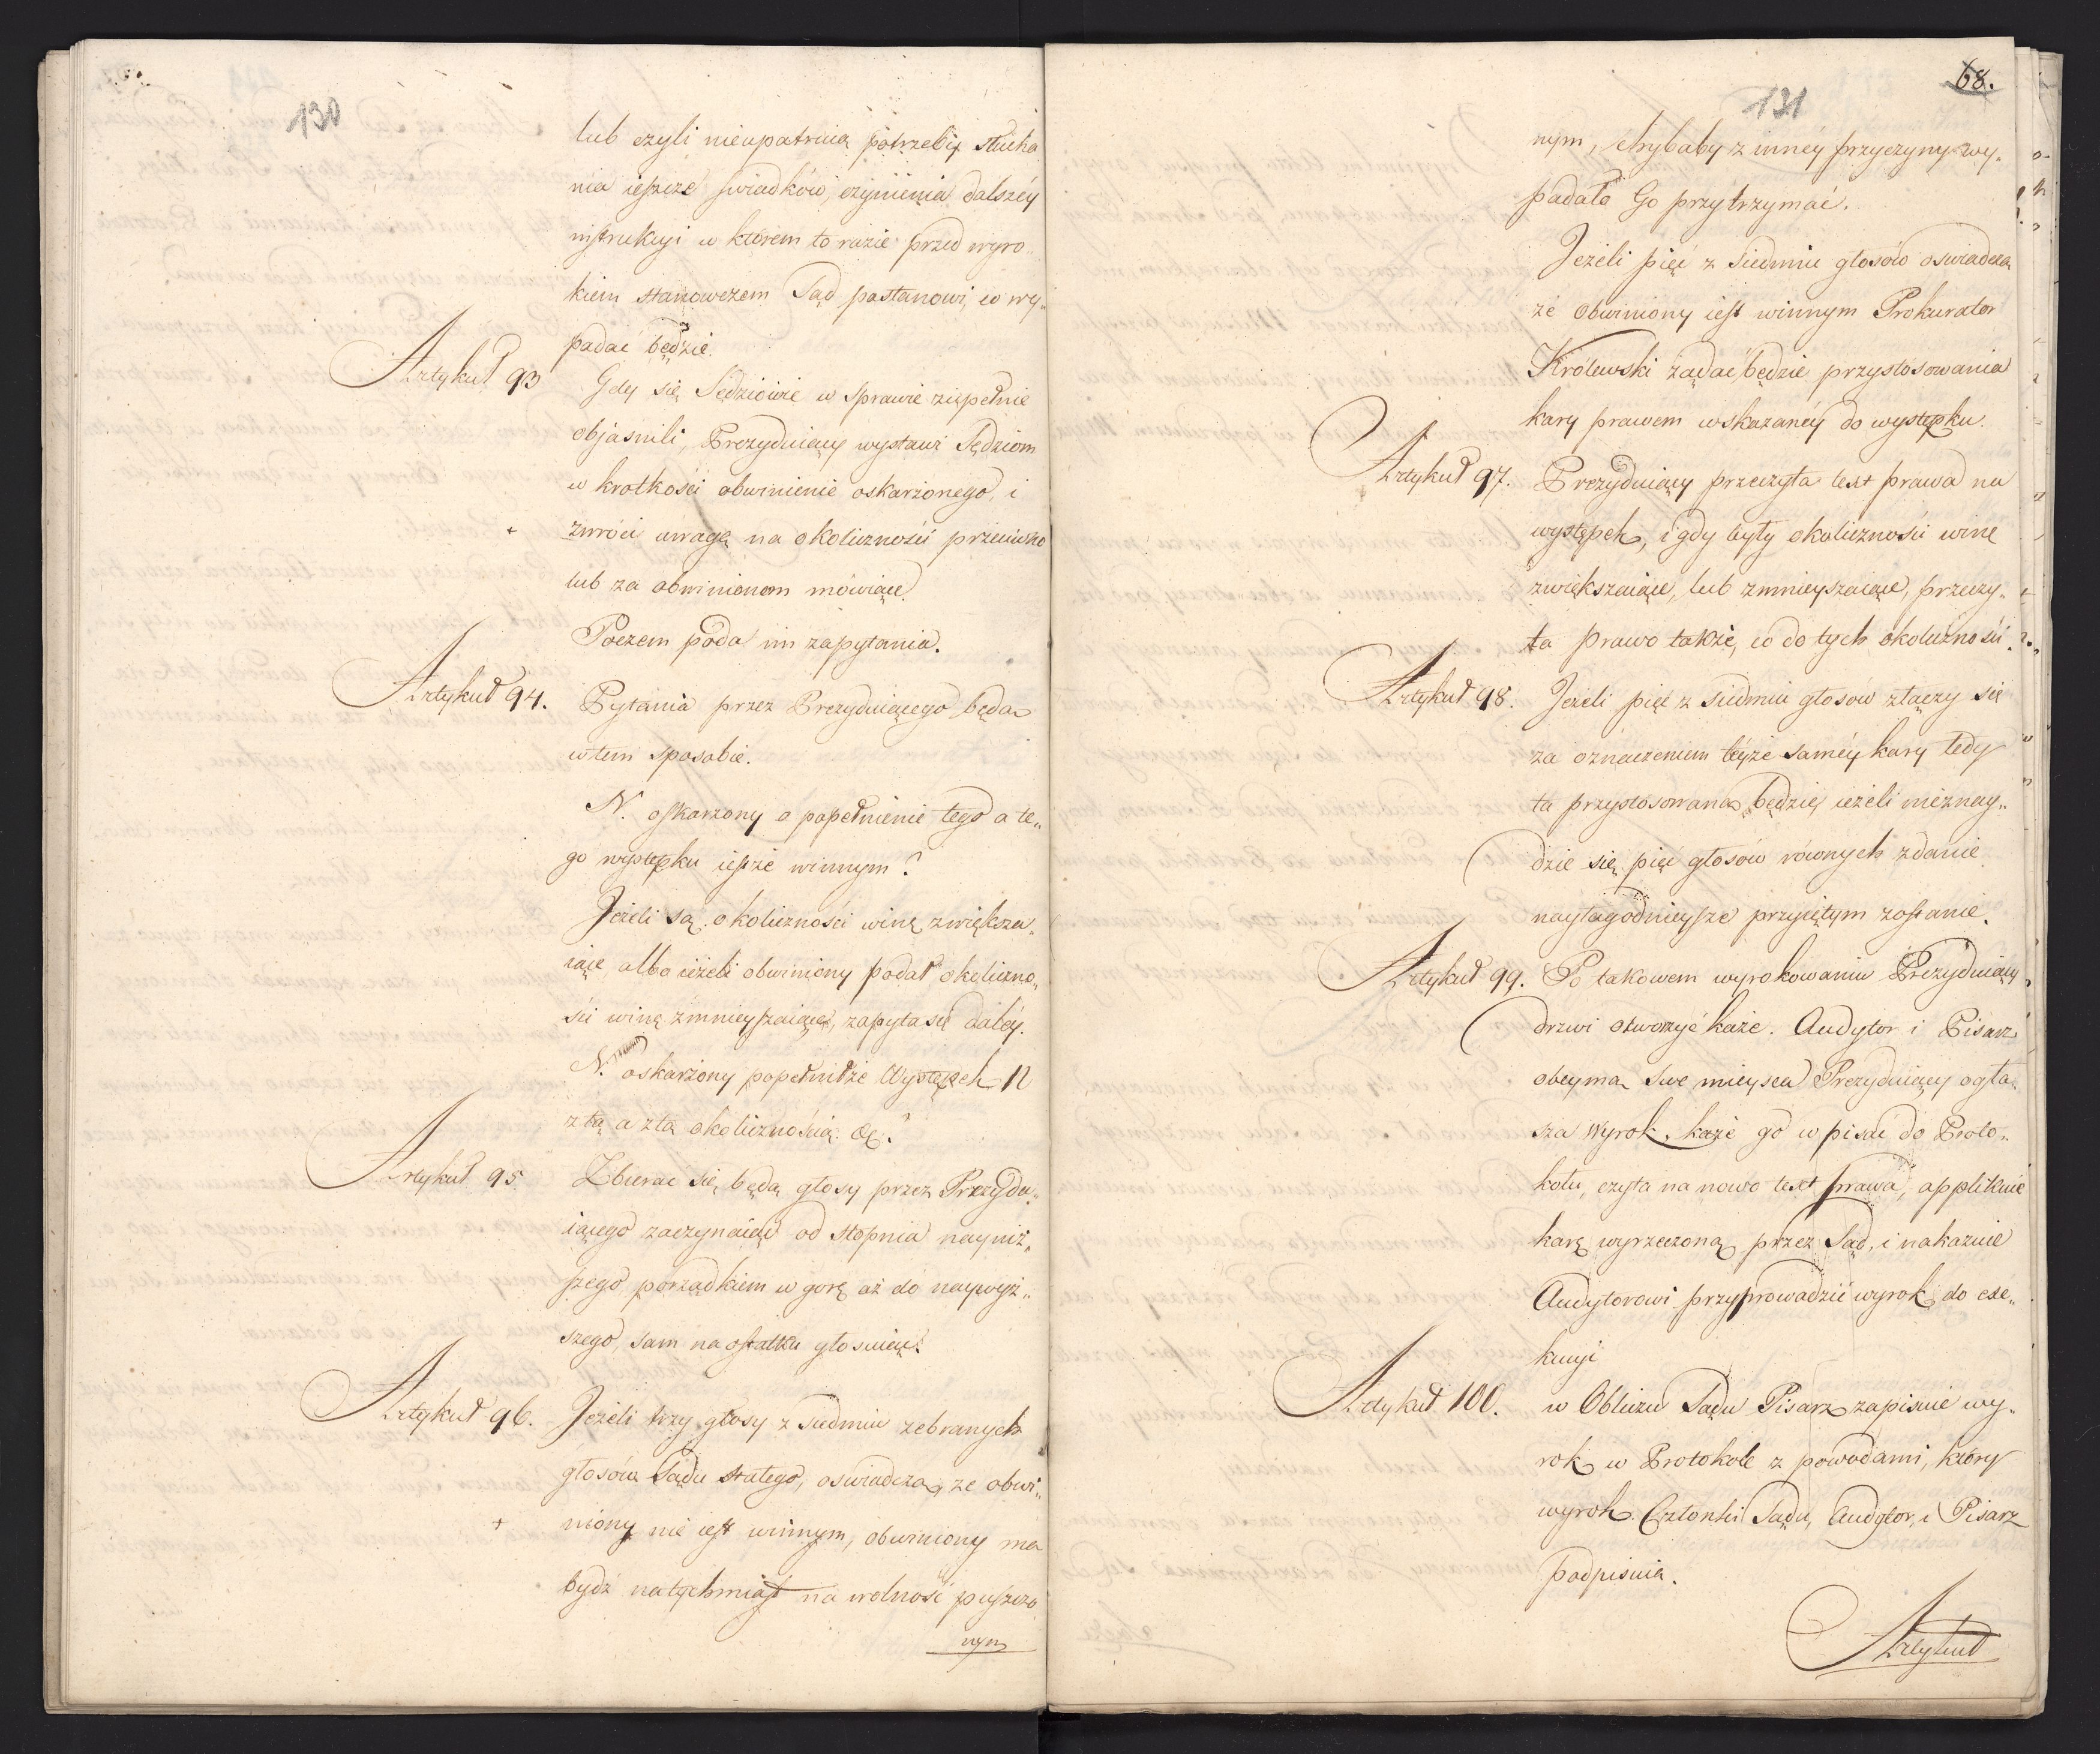 130
lub czyli nieupatruią potrzeby słucha
nia ieszcze swiadków, czynienia dalszéy
instrukcyi w którem to razie przed wyro
kiem stanowczem Sąd postanowi, co wy„
padać będzie.
Artykuł 93
Gdy się Sędziowie w Sprawie zupełnie
objasnili, Prezyduiący wystawi Sędziom
w krotkości obwinienie oskarżonego, i
+ zwróci uwagę na okoliczności przeciwko
lub za obwinionem mówiące.
Poczem poda im zapytania.
Artykuł 94.
Pytania przez Prezyduiącego będą
w tem sposobie.
N. oskarzony o popełnienie tego a te„
go występku iestże winnym?
Jeżeli są okoliczności winę zwiększa„
iące, albo ieżeli obwiniony podał okoliczno„
ści winę zmnieyszaiące, zapyta się daléy.
N. oskarżony popełniłże Występek N
z tą a z tą okolicznością &c.?
Artykuł 95
Zbierac się będą głosy przez Prezydu„
iącego zaczynaiąc od stopnia nayniż„
szego porządkiem w gorę aż do naywyż„
szego, sam na ostatku głosuiąc.
Artykuł 96.
Jeżeli trzy głosy z siedmiu zebranych
głosów Sądu stałego, oswiadczą, ze obwi„
+ niony nie iest winnym, obwiniony ma
bydź natychmiast na wolność puszczo
nym
68.
131
nym, chybaby z innéy przyczyny wy„
padało Go przytrzymać.
Jeżeli pięć z siedmiu głosów oswiadczą
że Obwiniony iest winnym Prokurator
Królewski żądać będzie przystosowania
kary prawem wskazanéy do występku.
Artykuł 97.
Prezyduiący przeczyta text prawa na
występek, i gdy były okoliczności winę
zwiększaiące, lub zmnieyszaiące, przeczy„
ta prawo także, co do tych okoliczności.
Artykuł 98.
Jeżeli pięć z siedmiu głosów złączy się
za oznaczeniem téyże saméy kary tedy
ta przystosowaną będzie, ieżeli nieznay„
dzie się pięć głosów równych zdanie
nayłagodnieysze przyiętym zostanie.
Artykuł 99.
Po takowem wyrokowaniu Prezyduiący
drzwi otworzyć każe. Audytor i Pisarz
obeymą Swe mieysca Prezyduiący ogła„
sza Wyrok, każe go w pisać do Proto„
kołu, czyta na nowo text prawa, applikuie
karę wyrzeczoną przez Sąd, i nakazuie
Audytorowi przyprowadzić wyrok do exe„
kucyi
Artykuł 100.
w Obliczu Sądu Pisarz zapisuie wy„
rok w Protokole z powodami, który
wyrok Członki Sądu, Audytor, i Pisarz
podpisuią.
Artykuł